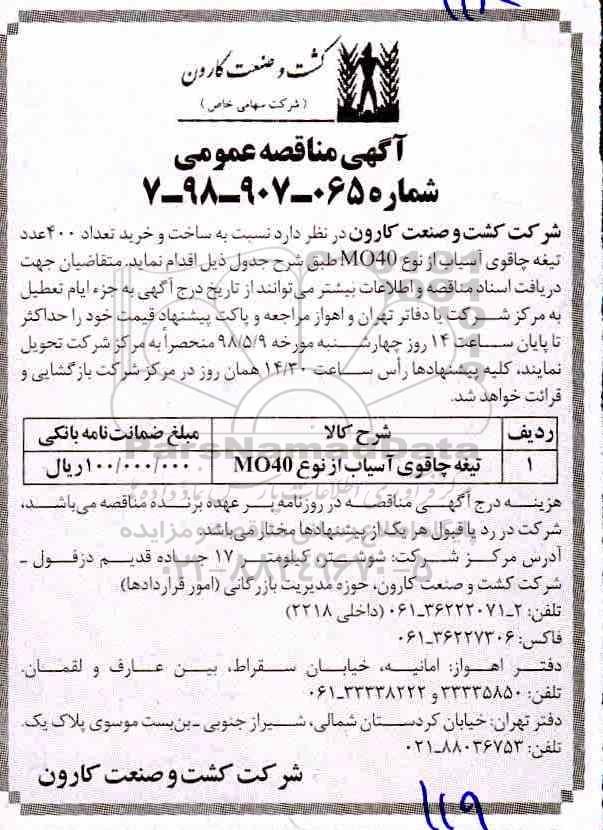 ۱۱۸
کشت و صنعت کارون
(شرکت سهامی خاص)
آگهی مناقصه عمومی
شماره ۰۶۵-۹۰۷-۹۸-۷
شرکت کشت و صنعت کارون در نظر دارد نسبت به ساخت و خرید تعداد ۴۰۰عدد
تیغه چاقوی آسیاب از نوع MO40 طبق شرح جدول ذیل اقدام نماید. متقاضیان جهت
دریافت اسناد مناقصه و اطلاعات بیشتر می‌توانند از تاریخ درج آگهی به جزء ایام تعطیل
به مرکز شرکت یا دفاتر تهران و اهواز مراجعه و پاکت پیشنهاد قیمت خود را حداکثر
تا پایان ساعت ۱۴ روز چهارشنبه مورخه ۹۸/۵/۹ منحصراً به مرکز شرکت تحویل
نمایند، کلیه پیشنهادها رأس ساعت ۱۴/۳۰ همان روز در مرکز شرکت بازگشایی و
قرائت خواهد شد.
ردیف شرح کالا مبلغ ضمانت‌نامه بانکی
۱ تیغه چاقوی آسیاب از نوع MO40 ۱۰۰/۰۰۰/۰۰۰ ریال
ParsNamadData
هزینه درج آگهی مناقصه در روزنامه بر عهده برنده مناقصه می‌باشد،
شرکت در رد یا قبول هر یک از پیشنهادها مختار می‌باشد.
آدرس مرکز شرکت: شوشتر، کیلومتر ۱۷ جاده قدیم دزفول -
۰۲۱-۸۸۳۴۹۶۷۰-۵
شرکت کشت و صنعت کارون، حوزه مدیریت بازرگانی (امور قراردادها)
تلفن: ۲-۳۶۲۲۲۰۷۱-۰۶۱ (داخلی ۲۲۱۸)
فاکس: ۳۶۲۲۷۳۰۶-۰۶۱
دفتر اهواز: امانیه، خیابان سقراط، بین عارف و لقمان.
تلفن: ۳۳۳۳۵۸۵۰ و ۳۳۳۳۸۲۲۲-۰۶۱
دفتر تهران: خیابان کردستان شمالی، شیراز جنوبی - بن‌بست موسوی پلاک یک.
تلفن: ۸۸۰۳۶۷۵۳-۰۲۱
شرکت کشت و صنعت کارون
۱۱۹